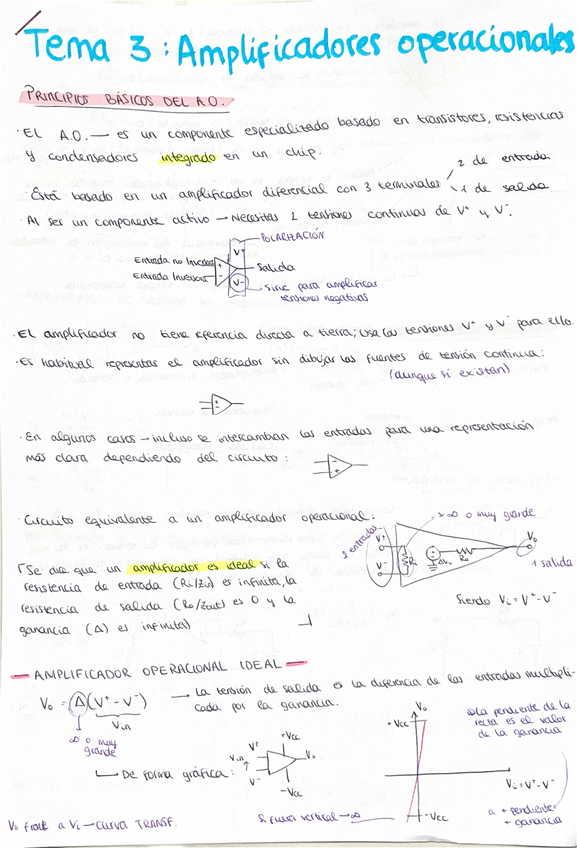 Tema 3: Amplificadores operacionales
PRINCIPIOS BÁSICOS DEL A.O.
· EL A.O. — es un componente especializado basado en transistores, resistencias
y condensadores integrado en un chip.
· Está basado en un amplificador diferencial con 3 terminales
2 de entrada
1 de salida
· Al ser un componente activo → Necesitas 2 tensiones continuas de V+ y V-.
POLARIZACIÓN
V+
Entrada no Inversora
Entrada Inversora
Salida
V-
· Sirve para amplificar
tensiones negativas
· EL amplificador no tiene referencia directa a tierra; usa las tensiones V+ y V- para ello.
· Es habitual representar el amplificador sin dibujar las fuentes de tensión continua:
(aunque sí existan)
· En algunos casos → incluso se intercambian las entradas para una representación
más clara dependiendo del circuito:
· Circuito equivalente a un amplificador operacional:
∞ o muy grande
2 entradas
V+
V-
Ri
Ro
Vo
1 salida
Siendo Vi = V+ - V-
Se dice que un amplificador es ideal si la
resistencia de entrada (Ri/Zin) es infinita, la
resistencia de salida (Ro/Zout) es 0 y la
ganancia (Δ) es infinita)
— AMPLIFICADOR OPERACIONAL IDEAL —
Vo = Δ(V+ - V-)
Vin
∞ o muy
grande
→ La tensión de salida es la diferencia de las entradas multipli-
cada por la ganancia.
De forma gráfica:
Vin
V+
V-
+Vcc
-Vcc
Vo
Vo
+Vcc
-Vcc
Vi = V+ - V-
La pendiente de la
recta es el valor
de la ganancia
a + pendiente
+ ganancia
Si fuera vertical → ∞
Vo frente a Vi — CURVA TRANSF.